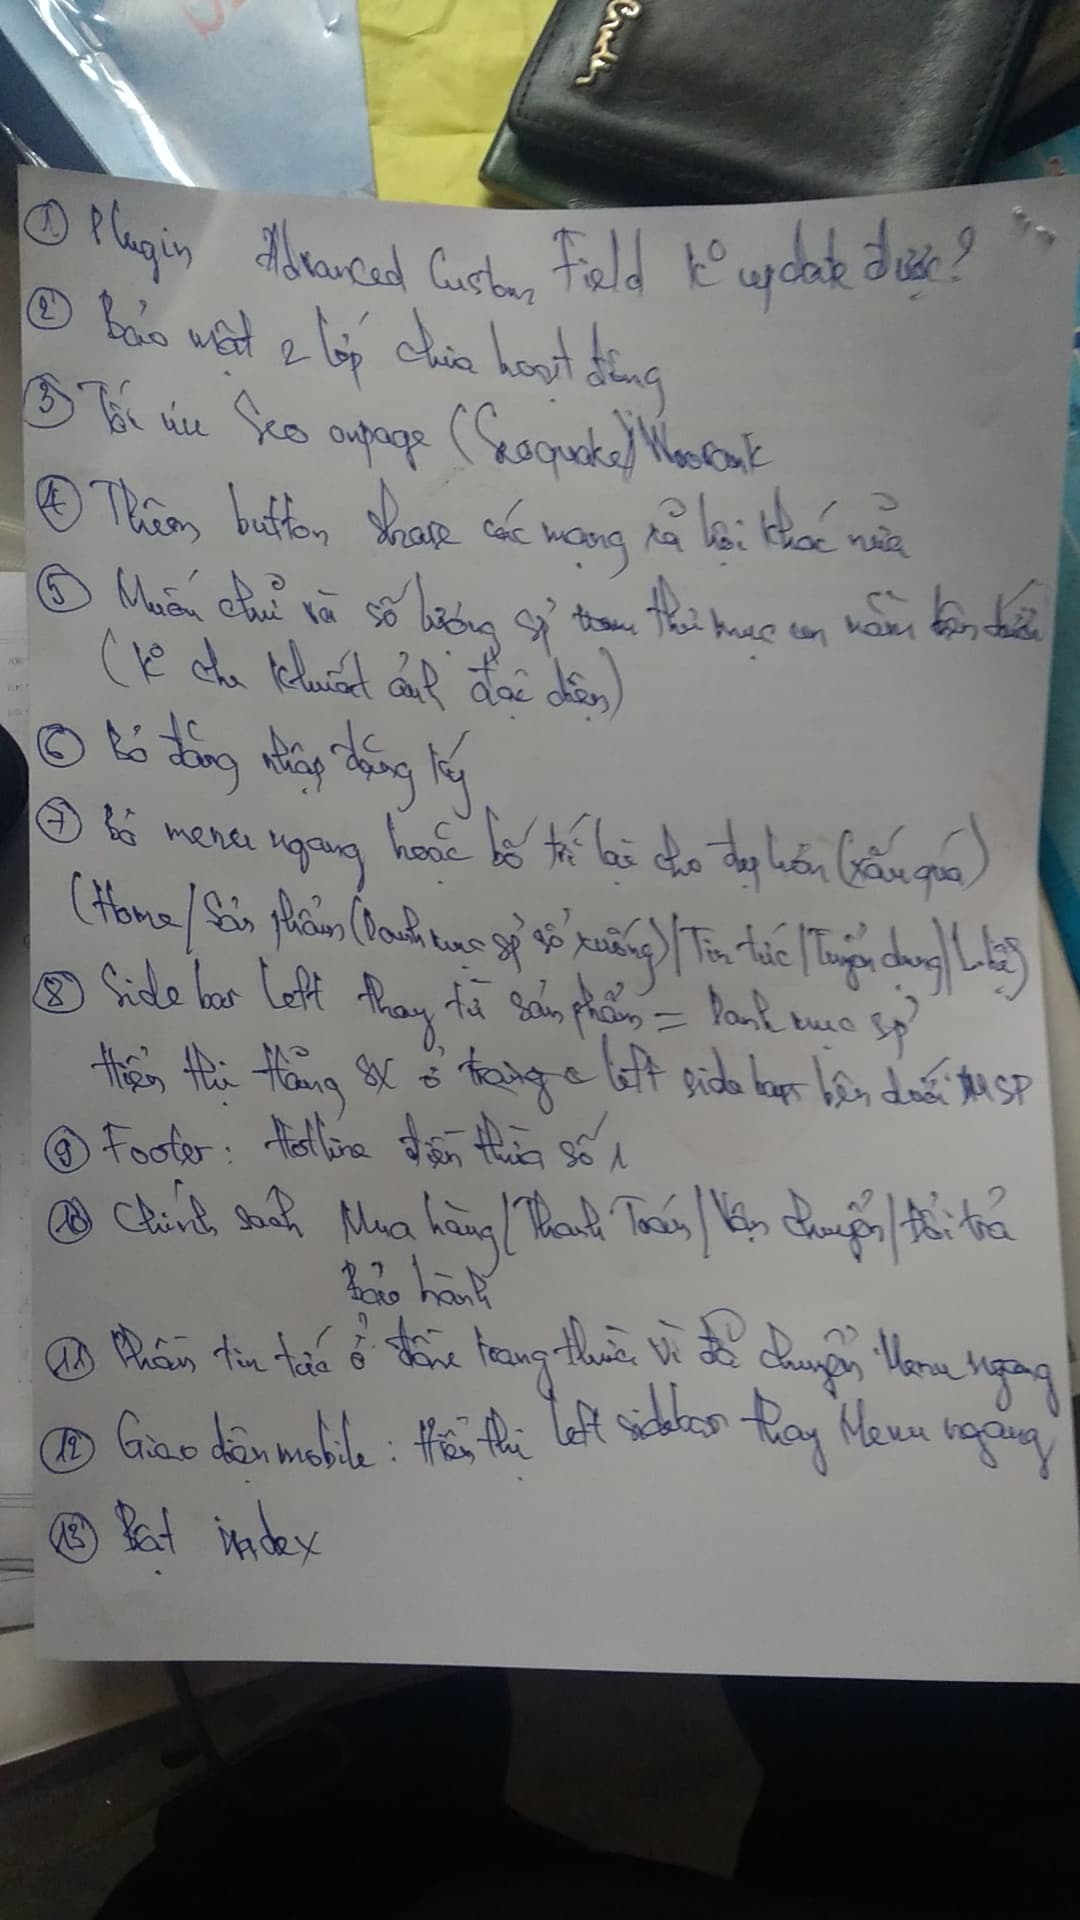 ① Plugin Advanced Custom Field kº update được?
② Bảo mật 2 lớp chưa hoạt động
③ Tối ưu Seo onpage (Seoquake)/Woorank
④ Thêm button share các mạng xã hội khác nữa
⑤ Muốn chữ và số lượng sp thư mục con nằm bên dưới
(kº che khuất ảnh đại diện)
⑥ Bỏ đăng nhập đăng ký
⑦ Bỏ menu ngang hoặc bố trí lại cho đẹp hơn (xấu quá)
(Home/Sản phẩm (Danh mục sp sổ xuống)/Tin tức/Tuyển dụng/L.hệ)
⑧ Side bar left thay từ sản phẩm = Danh mục sp
Hiển thị Hãng SX ở left side bar bên dưới MSP
⑨ Footer: Hotline điền thừa số 1
⑩ Chính sách Mua hàng/Thanh Toán/Vận chuyển/Đổi trả
Bảo hành
⑪ Phần tin tức ở đầu trang thừa vì đã chuyển Menu ngang
⑫ Giao diện mobile: Hiển thị left sidebar thay Menu ngang
⑬ Bật index